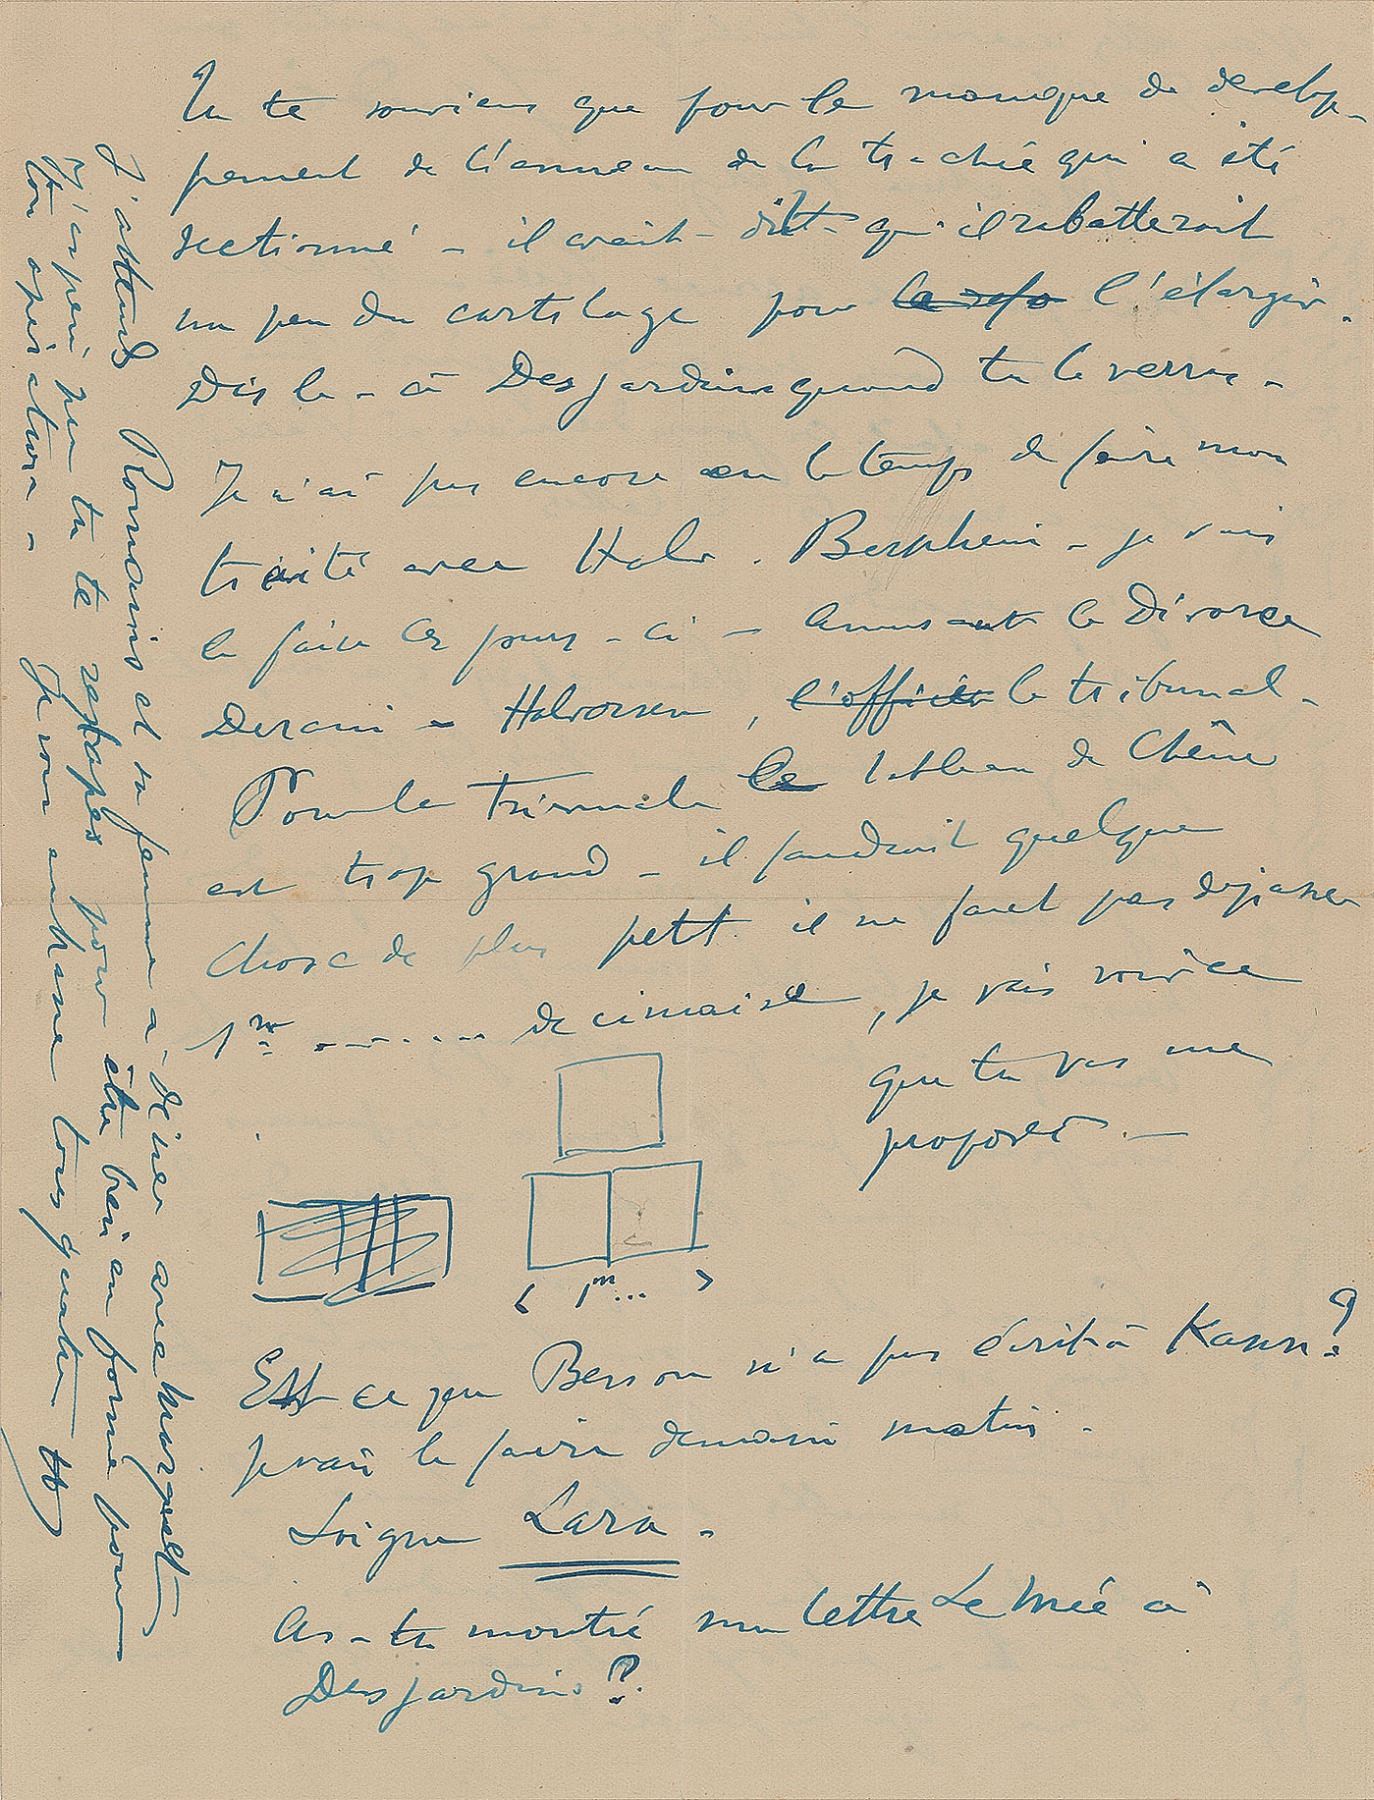 Tu te souviens que pour le manque de develop-
pement de l'anneau de la trachée qui a été
sectionné - il avait dit qu'il rabatterait
un peu du cartilage pour l'élargir.
Dis le - à Desjardins quand tu le verras -
Je n'ai pas encore eu le temps de faire mon
traité avec Halv. Bernheim - je vais
le faire ces jours-ci - Amusant le Divorce
Derain - Halvorsen, le tribunal -
Pour la Triennale le tableau de Chêne
est trop grand - il faudrait quelque
chose de plus petit. il ne faut pas dépasser
1m ....... de cimaise, je vais voir ce
que tu vas me
proposer. -
1m...
Est ce que Besson n'a pas écrit à Kann?
je vais le faire demain matin.
Soigne Lara -
As-tu montré ma lettre Le Mée à
Desjardins?
J'attends Romains et sa femme à diner avec Marquet
J'espère que tu te retapes pour être bien en forme pour
ton opération -
Je vous embrasse tous quatre H